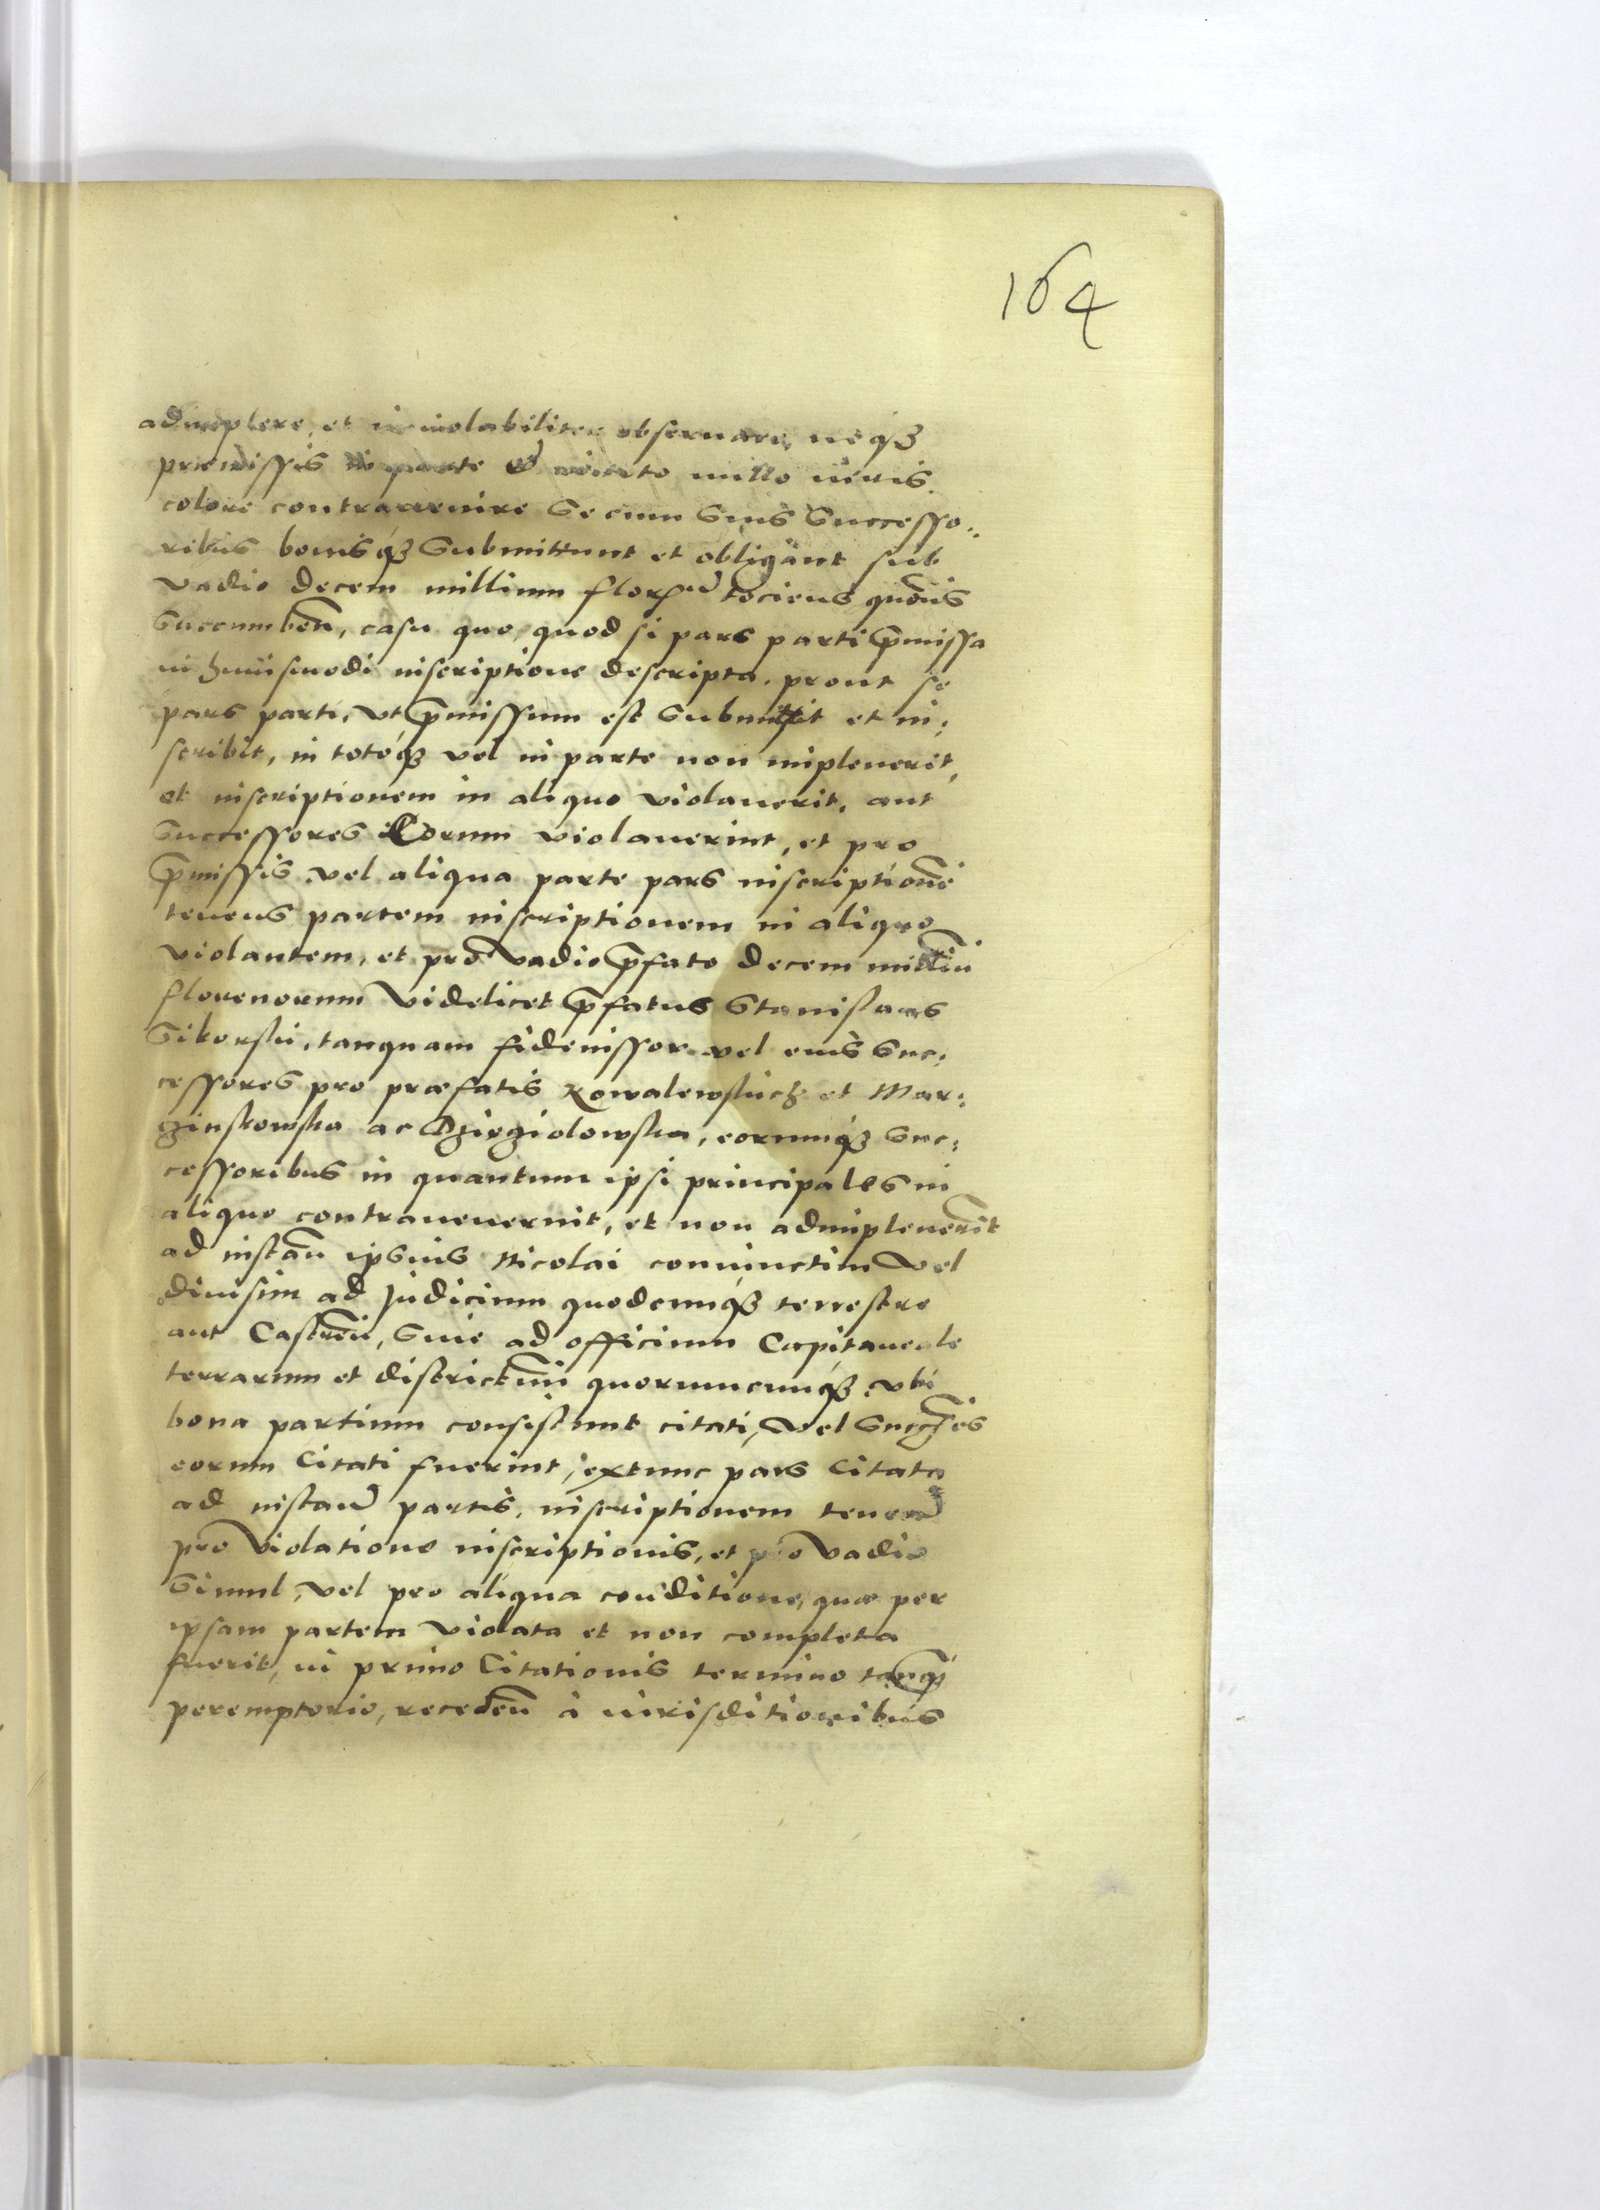 164
adimplere, et inviolabiliter obseruare, neq3
præmissis in parte et toto nullo iuris
colore contrauenire Se cum Suis Successo:
ribus bonisq3 Submittunt et obligant sub
Vadio decem millium floren tociens quotiens
Succumben, casu quo, quod si pars parti pmissa
in huiusmodi inscriptione descripta, prout se
pars parti, vt pmissum est Submittit et in:
scribit, in totoq3 vel in parte non impleuerit,
et inscriptionem in aliquo violauerit, aut
Successores Eorum violauerint, et pro
pmissis vel aliqua parte pars inscriptione
tenens partem inscriptionem in aliquo
violantem, et pro Vadio pfato decem milliu
florenorum Videlicet pfatus Stanislaus
Sikorski, tanquam fideiussor vel eius Suc:
cessores pro præfatis Kowalewskich et Mar:
ginkowska ac Dzirgiolowska, eorumq3 Suc:
cessoribus in quantum ipsi principales in
aliquo contrauenerint, et non adimpleuerint
ad instan ipsius Nicolai coniunctim Vel
diuisim ad Judicium quodcunq3 terrestre
aut Castren, Siue ad officium Capitaneale
terrarum et districtum quorumcunq3 vbi
bona partium consistunt citati, Vel Succes
eorum Citati fuerint, extunc pars Citata
ad instan partis, inscriptionem tenen
pro Violatione inscriptionis, et pro Vadio
Simul, vel pro aliqua conditione, quæ per
ipsam partem Violata et non completa
fuerit, in primo Citationis termino tanq
peremptorio, receden a iurisditionibus